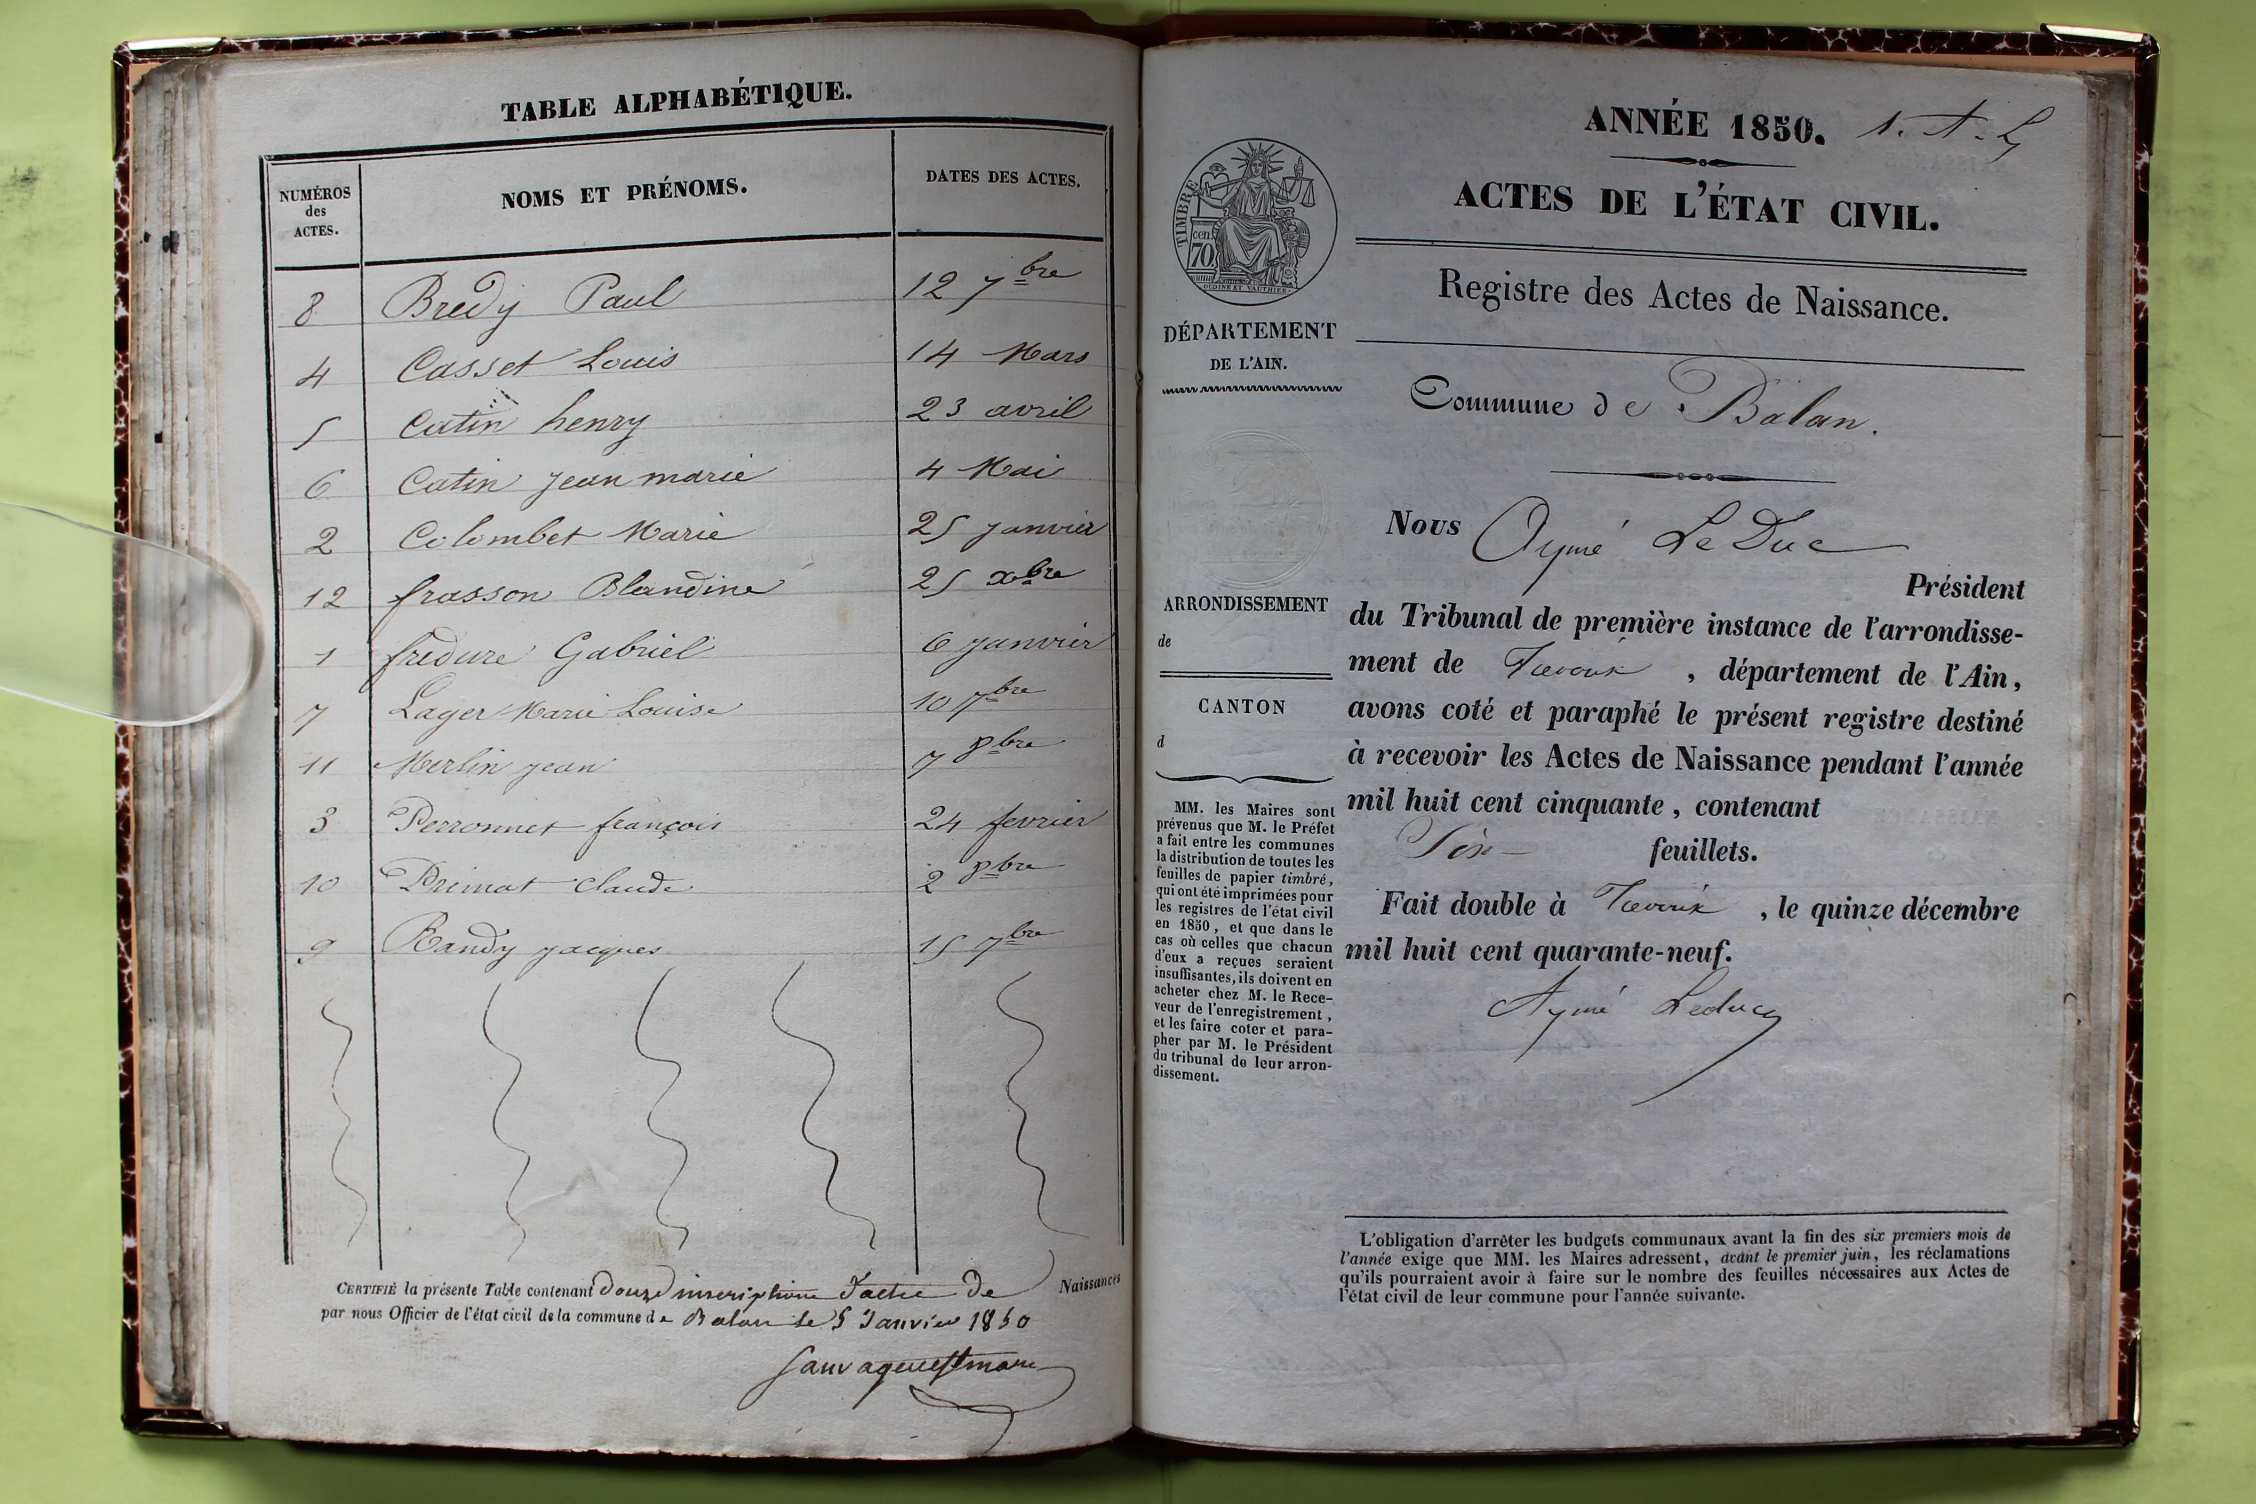 TABLE ALPHABÉTIQUE.
NUMÉROS des ACTES. NOMS ET PRÉNOMS. DATES DES ACTES.
8 Bredy Paul 12 7bre
4 Casset Louis 14 Mars
5 Catin henry 23 avril
6 Catin jean marie 4 Mai
2 Colombet Marie 25 janvier
12 frasson Blandine 25 xbre
1 fredure Gabriel 6 janvier
7 Lager Marie Louise 10 7bre
11 Merlin jean 7 8bre
3 Perronnet françois 24 fevrier
10 Primat Claude 2 8bre
9 Randy jacques 15 7bre
CERTIFIÉ la présente Table contenant douze inscriptions d'actes de Naissances
par nous Officier de l'état civil de la commune de Balan le 5 Janvier 1850
ANNÉE 1850. 1. A. L
ACTES DE L'ÉTAT CIVIL.
Registre des Actes de Naissance.
TIMBRE
70 cen.
OUDINÉ ET VAUTHIER.
DÉPARTEMENT
DE L'AIN.
ARRONDISSEMENT
de
CANTON
d
MM. les Maires sont
prévenus que M. le Préfet
a fait entre les communes
la distribution de toutes les
feuilles de papier timbré,
qui ont été imprimées pour
les registres de l'état civil
en 1850, et que dans le
cas où celles que chacun
d'eux a reçues seraient
insuffisantes, ils doivent en
acheter chez M. le Rece-
veur de l'enregistrement,
et les faire coter et para-
pher par M. le Président
du tribunal de leur arron-
dissement.
Commune de Balan.
Nous Aymé LeDuc
Président
du Tribunal de première instance de l'arrondisse-
ment de Trevoux, département de l'Ain,
avons coté et paraphé le présent registre destiné
à recevoir les Actes de Naissance pendant l'année
mil huit cent cinquante, contenant
Six feuillets.
Fait double à Trevoux, le quinze décembre
mil huit cent quarante-neuf.
Aymé Leduc
L'obligation d'arrêter les budgets communaux avant la fin des six premiers mois de
l'année exige que MM. les Maires adressent, avant le premier juin, les réclamations
qu'ils pourraient avoir à faire sur le nombre des feuilles nécessaires aux Actes de
l'état civil de leur commune pour l'année suivante.